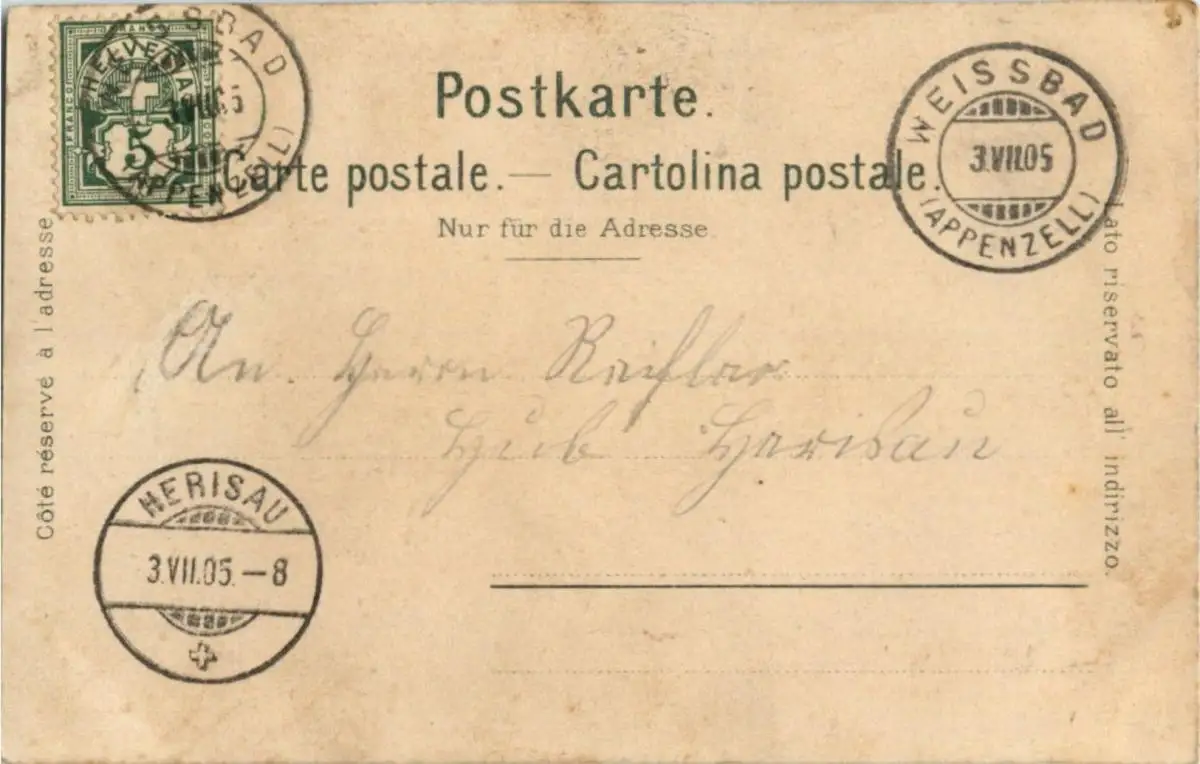 HELVETIA
FRANCO
5
WEISSBAD
(APPENZELL)
Postkarte.
Carte postale. — Cartolina postale.
Nur für die Adresse
WEISSBAD
3.VII.05
(APPENZELL)
Côté réservé à l'adresse
Lato riservato all' indirizzo.
An Herrn
Hub Herisau
HERISAU
3.VII.05.-8